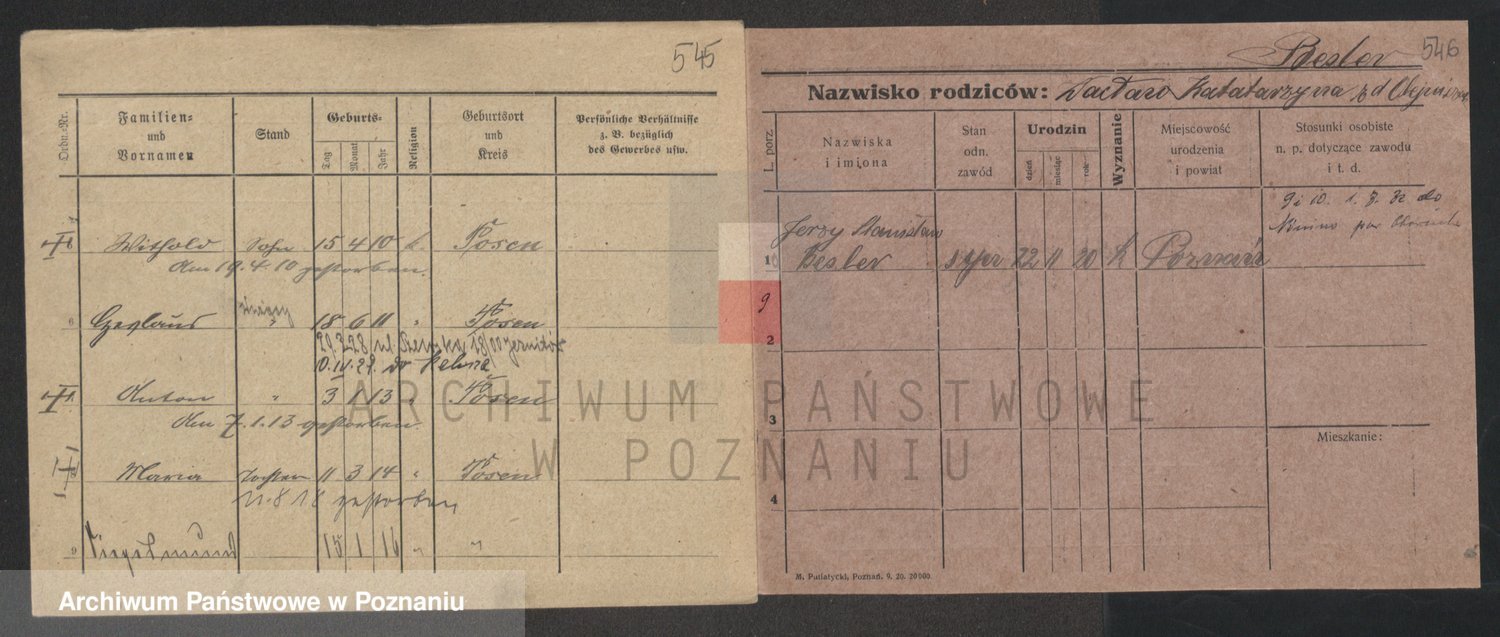 545
Ordn.-Nr.
Familien-
und
Vornamen
Stand
Geburts-
Tag
Monat
Jahr
Religion
Geburtsort
und
Kreis
Persönliche Verhältnisse
z. B. bezüglich
des Gewerbes usw.
Withold Sohn 15 4 10 k. Posen
Am 19.4.10 gestorben.
6 Czeslaus " 18 6 11 " Posen
Anton " 3 1 13 " Posen
Am 7.1.13 gestorben.
Maria Tochter 11 3 14 " Posen
11.8.18 gestorben
9 Siegesmund 15 1 16 " "
Besler 546
Nazwisko rodziców: Wacław Katarzyna
L. porz
Nazwiska
i imiona
Stan
odn.
zawód
Urodzin
dzień
miesiąc
rok
Wyznanie
Miejscowość
urodzenia
i powiat
Stosunki osobiste
n. p. dotyczące zawodu
i t. d.
9 i 10. 1. 7. 32 do
Jerzy Stanisław
1 Besler syn 22 11 20 k Poznań
9
2
3
4
Mieszkanie:
M. Putiatycki, Poznań. 9. 20. 20000
ARCHIWUM PAŃSTWOWE
W POZNANIU
Archiwum Państwowe w Poznaniu